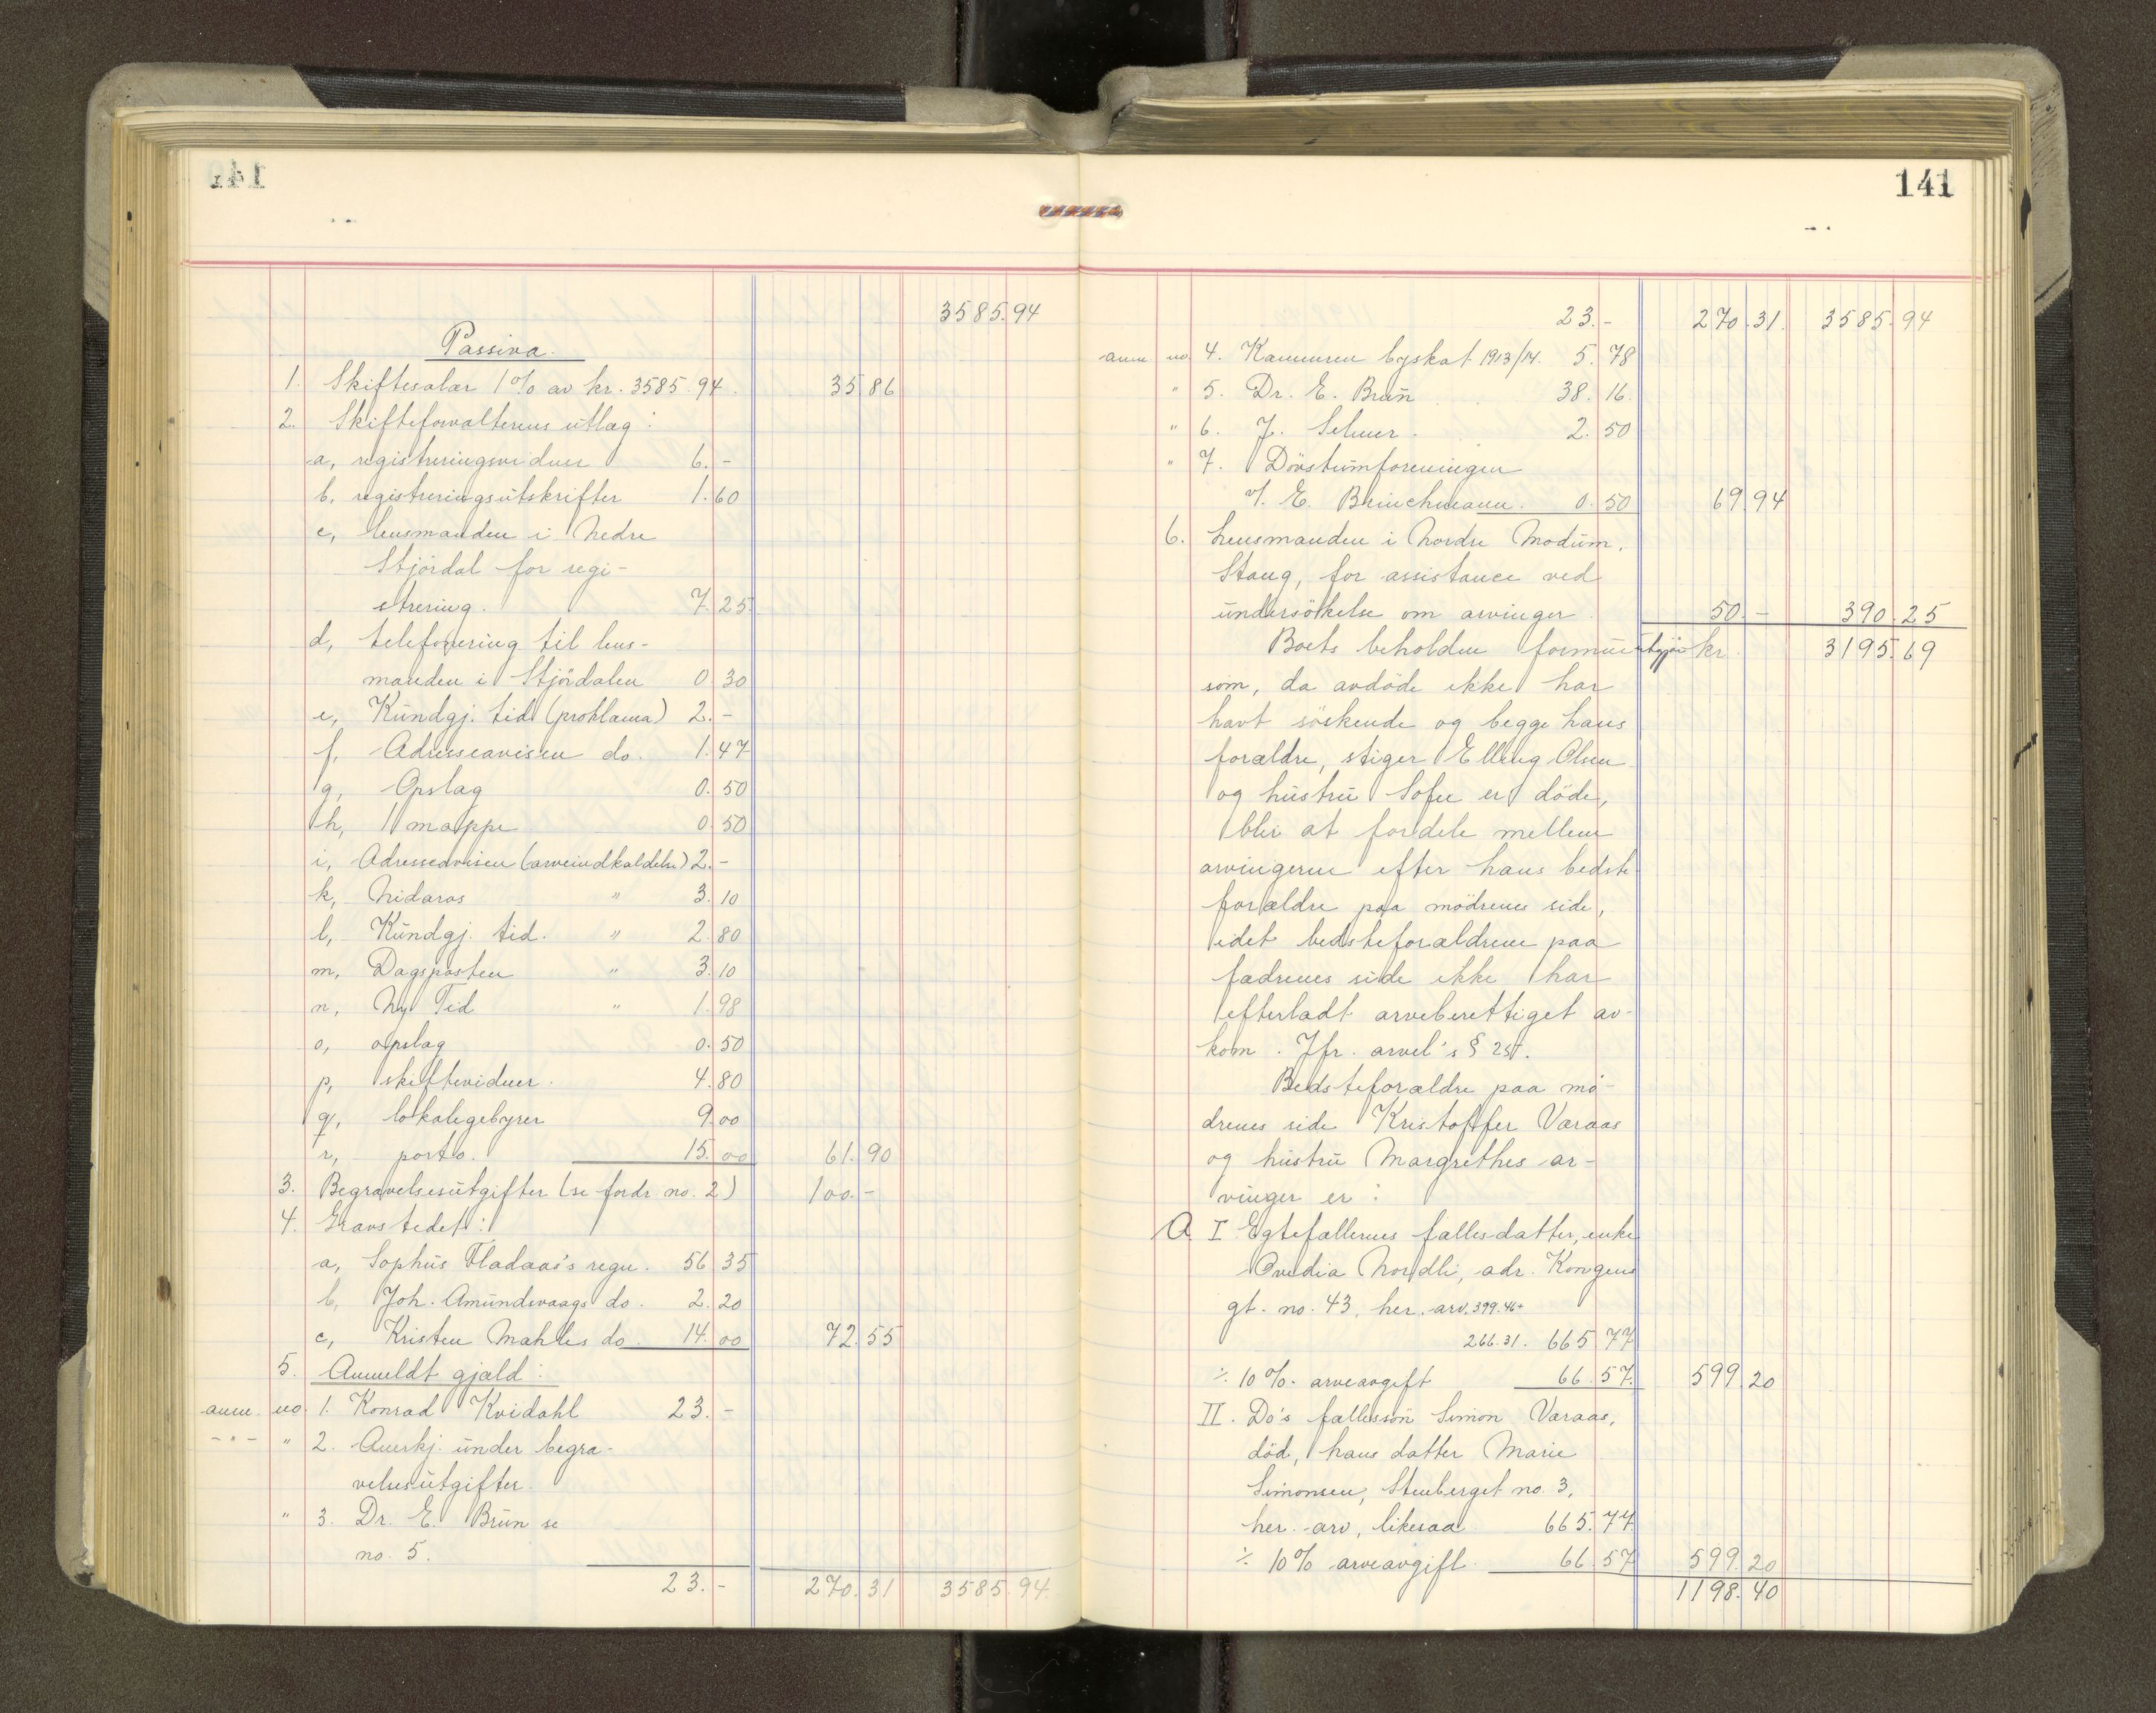 141
3585.94
Passiva.
1. Skiftesalær 1% av kr. 3585.94. 35 86
2. Skifteforvalterens utlæg:
a, registreringsvidner 6.-
b, registreringsutskrifter 1.60
c, lensmanden i Nedre
Stjørdal for regi-
strering. 7.25
d, telefonering til lens-
manden i Stjördalen 0 30
e, Kundgj. tid. (proklama) 2.-
f, Adresseavisen do. 1.47
g, Opslag 0.50
h, 1 mappe 0.50
i, Adresseavisen (arveindkaldelse) 2.-
k, Nidaros " 3.10
l, Kundgj. tid. " 2.80
m, Dagsposten " 3.10
n, Ny Tid " 1.98
o, opslag 0.50
p, skiftevidner. 4.80
q, lokalegebyrer 9.00
r, porto. 15.00 61.90
3. Begravelsesutgifter (se fordr. no. 2) 100.-
4. Gravstedet:
a, Sophus Fladaas's regn. 56 35
b, Joh. Amundsvaags do. 2.20
c, Kristen Mahles do. 14.00 72.55
5. Anmeldt gjæld:
anm. no. 1. Konrad Kvidahl 23.-
-"- " 2. Anerkj. under begra-
velsesutgifter.
" 3. Dr. E. Brun se
no. 5.
23.- 270.31 3585.94
141
23.- 270.31. 3585.94
anm. no. 4. Kæmneren byskat 1913/14. 5.78
" 5. Dr. E. Brun 38.16.
" 6. J. Selmer. 2.50
" 7. Dövstumforeningen
v/. E. Brinchmann. 0.50 69.94
6. Lensmanden i Nordre Modum,
Staug, for assistance ved
undersökelse om arvinger. 50.- 390.25
Boets beholdne formue utgjör kr. 3195.69
som, da avdöde ikke har
havt söskende og begge hans
forældre, stiger Elling Olsen
og hustru Sofie er döde,
blir at fordele mellem
arvingerne efter hans bedste-
forældre paa mödrenes side,
idet bedsteforældrene paa
fædrenes side ikke har
efterladt arveberettiget av-
kom. Jfr. arvel's § 25.
Bedsteforældre paa mö-
drenes side Kristoffer Varaas
og hustru Margrethes ar-
vinger er:
A I Egtefællernes fællesdatter, enke
Ovedia Nordli, adr. Kongens
gt. no. 43, her. arv. 399.46+
266.31. 665 77
÷ 10%. arveavgift 66.57. 599.20
II. Do's fællessön Simon Varaas,
död, hans datter Marie
Simonsen, Stenberget no. 3,
her. arv, likesaa 665.77
÷ 10% arveavgift. 66.57 599.20
1198.40